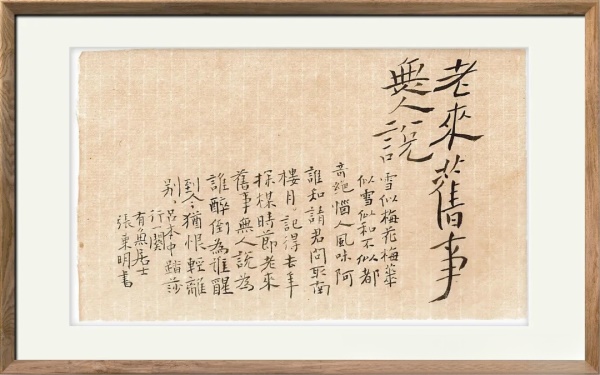 老來舊事
無人說
雪似梅花梅華
似雪似和不似都
奇絕惱人風味阿
誰知請君問取南
樓月記得去年
探楳時節老來
舊事無人說為
誰醉倒為誰醒
到今猶恨輕離
別呂本中踏莎
行一闋
有魚居士
張秉明書